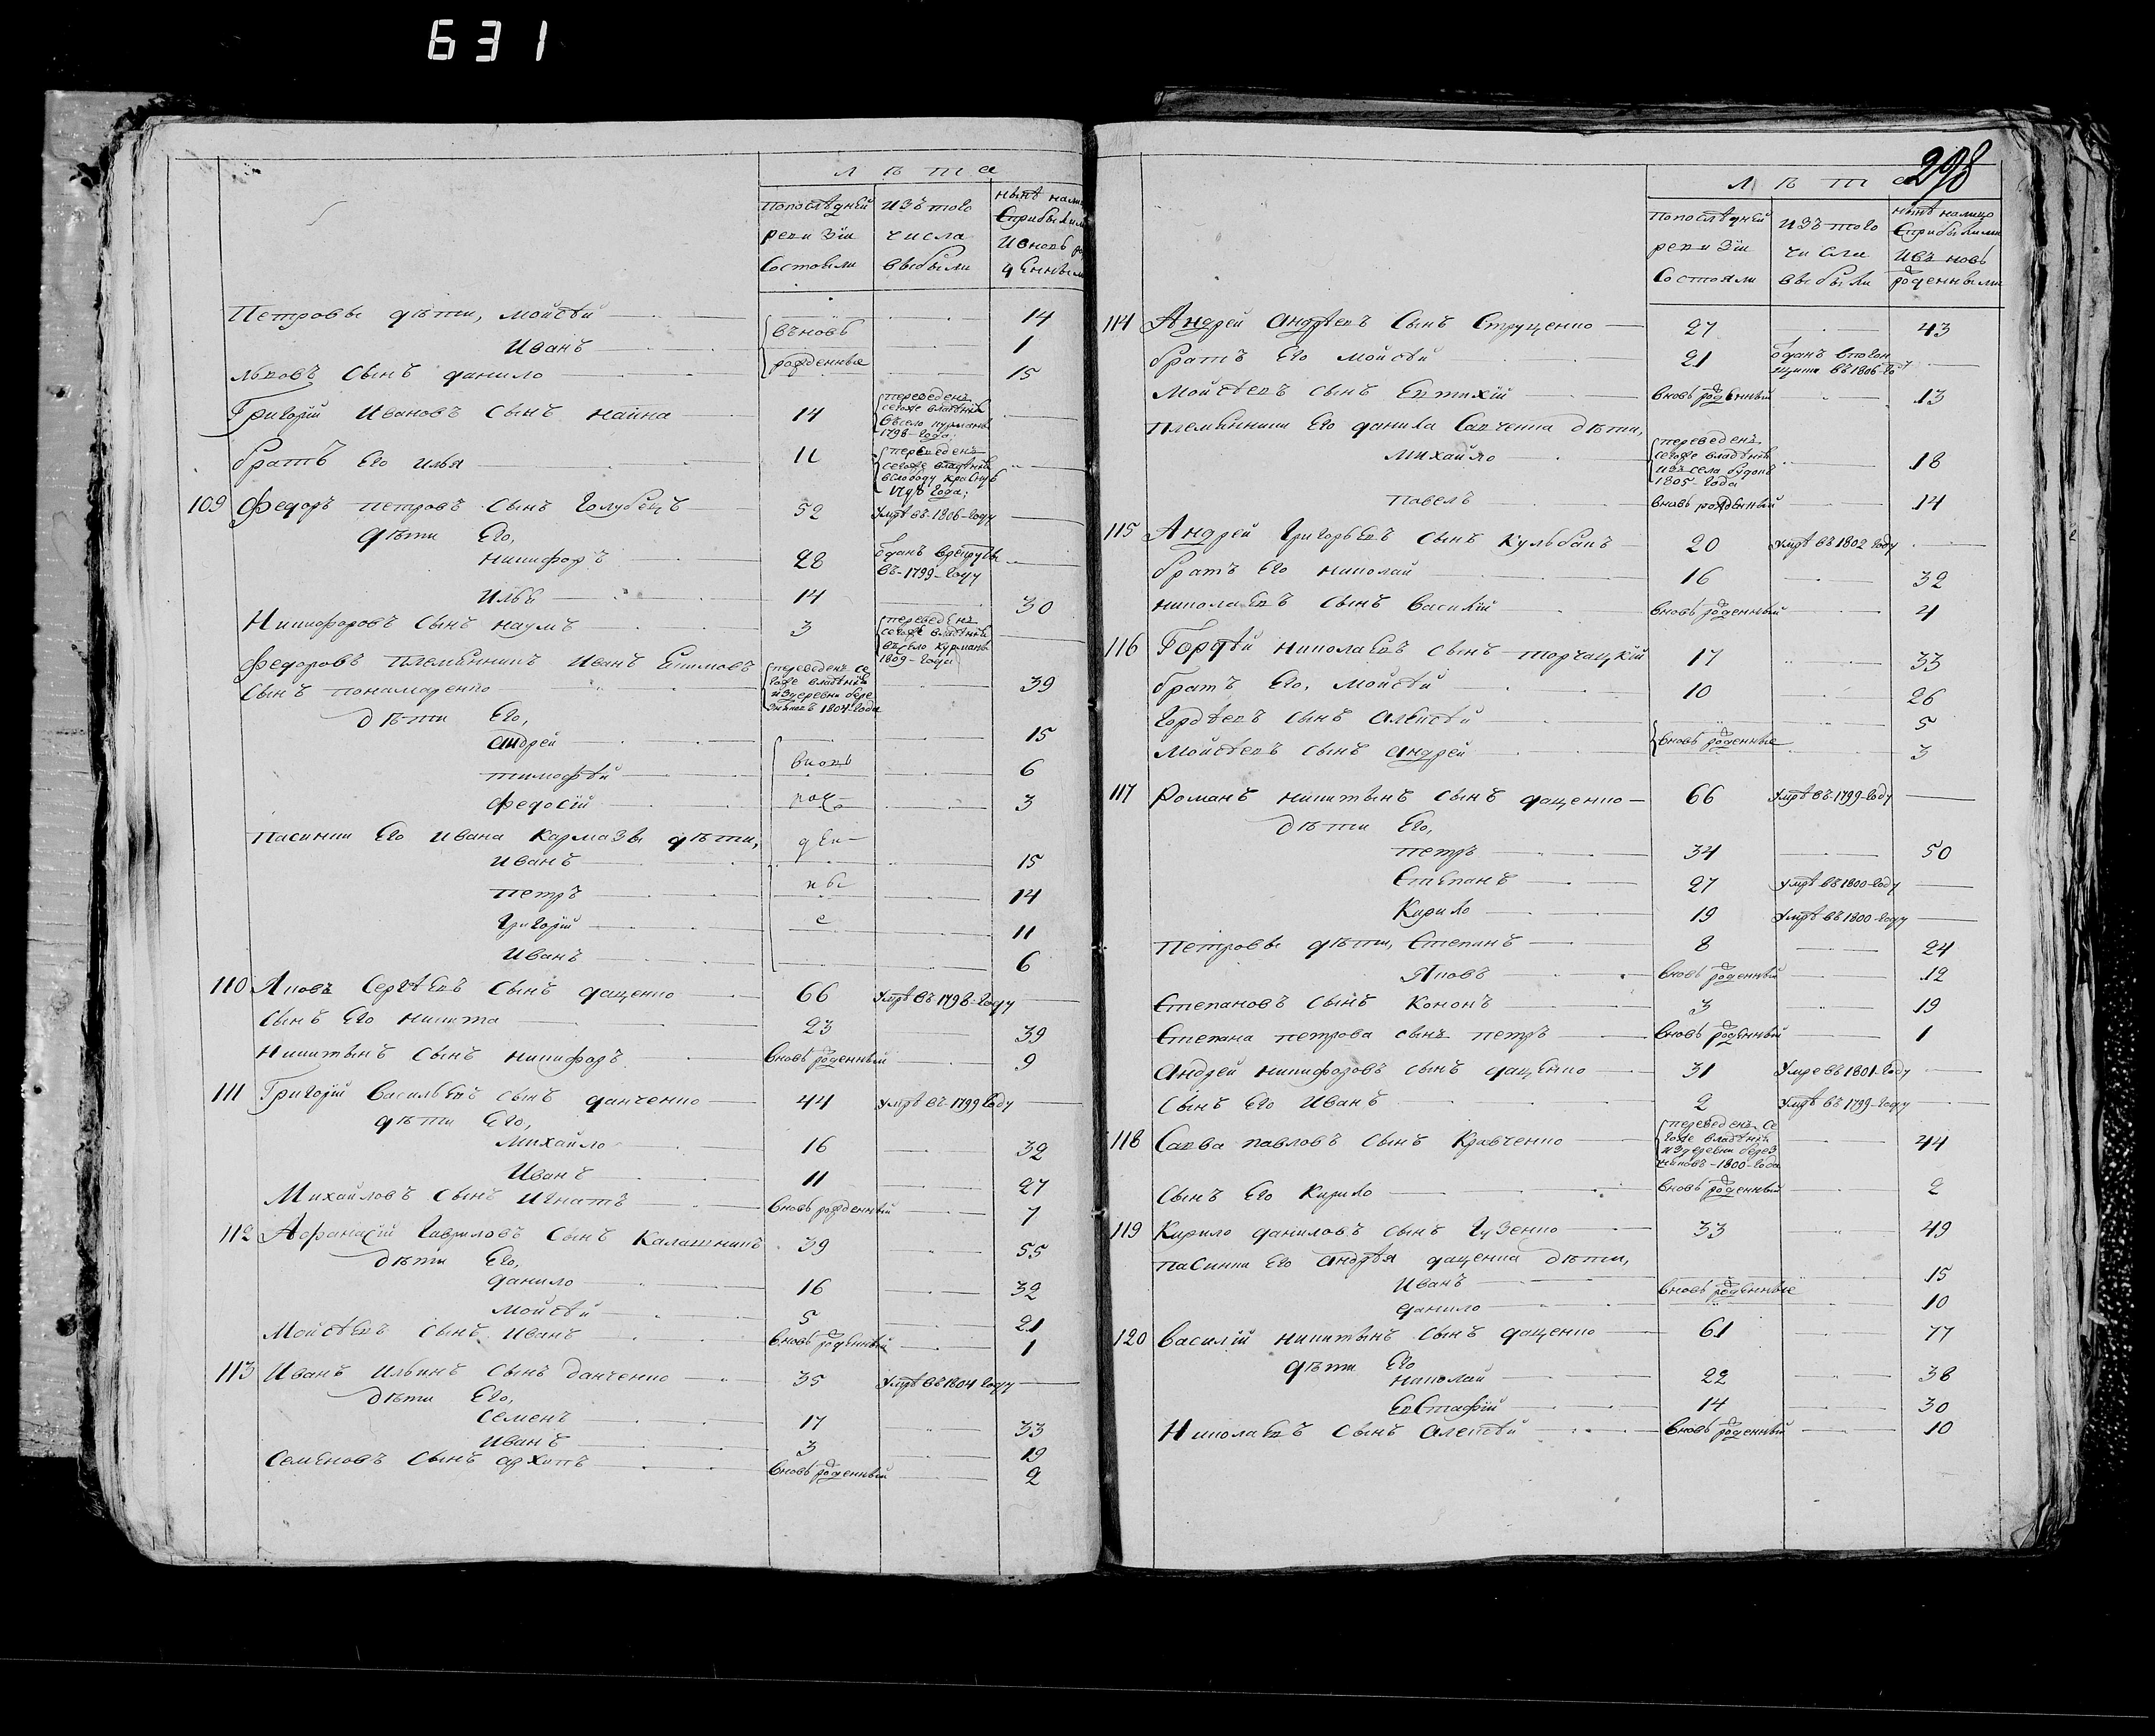 631
лѣта
попослѣдней ревизiи состояли
изъ того числа выбыли
нынѣ
Петровы дѣти, мойсѣй 14
въновь рожденныя
иванъ 1
яковъ сынъ данило 15
Григорiй ивановъ сынъ 14 переведенъ сегоже владѣнiя въ село курмань 1798 года;
братъ Его илья 11 переведенъ сегоже владѣнiя в слободу года;
109 Федоръ петровъ сынъ голубецъ 52 умре въ 1806 году
дѣти Его,
никифоръ 28 отданъ врекруты въ 1799 году
илья 14 30
Никифоровъ сынъ наумъ 3 переведенъ сегоже владѣнiя въ село курмань 1809 года
федоровъ племѣнникъ иванъ Екимовъ
сынъ пономаренко переведенъ сегоже владѣнiя из деревни 1804 года 39
дѣти Его,
андрей 15
тимофѣй 6
федосiй 3
вновь рожденные
пасинки Его ивана кармазы дѣти,
иванъ 15
петръ 14
григорiй 11
иванъ 6
110 Яковъ Сергѣевъ сынъ даценко 66 умре въ 1798 году
сынъ Его никита 23 39
никитынъ сынъ никифоръ вновь рожденный 9
111 Григорiй васильевъ сынъ данченко 44 умре въ 1799 году
дѣти Его,
михайло 16 32
иванъ 11 27
Михайловъ сынъ игнатъ вновь рожденный 7
112 Афанасiй гавриловъ сынъ калашникъ 39 55
дѣти Его,
данило 16 32
мойсѣй 5 21
Мойсѣевъ сынъ иванъ вновь рожденный 1
113 Иванъ ильинъ сынъ данченко 35 умре въ 1804 году
дѣти Его,
семенъ 17 33
иванъ 3 19
семеновъ сынъ архипъ вновь рожденный 2
298
лѣта
попослѣдней ревизiи состояли
изъ того числа выбыли
нынѣ налицо с прибылыми и въ новь рожденными
114 Андрей андрѣевъ сынъ струценко 27 43
братъ Его мойсѣй 21 отданъ въ 1806 году
Мойсѣевъ сынъ Евтихiй вновь рожденный 13
племѣнники Его данила савченка дѣти,
михайло переведенъ сегоже владѣнiя изъ села 1805 года 18
павелъ вновь рожденный 14
115 Андрей григорьевъ сынъ кульбакъ 20 умре въ 1802 году
братъ Его николай 16 32
николаевъ сынъ василiй вновь рожденный 4
116 Гордѣй николаевъ сынъ торчацкiй 17 33
братъ Его, мойсѣй 10 26
гордѣевъ сынъ алексѣй 5
вновь рожденные
мойсѣевъ сынъ андрей 3
117 Романъ никитынъ сынъ даценко 66 умре въ 1799 году
дѣти Его,
петръ 34 50
Степанъ 27 умре въ 1800 году
Кирило 19 умре въ 1800 году
петровы дѣти, Степанъ 8 24
Яковъ вновь рожденный 12
Степановъ сынъ кононъ 3 19
Степана петрова сынъ петръ вновь рожденный 1
андрей никифоровъ сынъ даценко 31 умре въ 1801 году
сынъ Его иванъ 2 умре въ 1799 году
118 Савва павловъ сынъ кравченко переведенъ сегоже владѣнiя из деревни 1800 года 44
сынъ Его кирило вновь рожденный 2
119 Кирило даниловъ сынъ гузенко 33 49
пасинки Его андрѣя даценка дѣти,
иванъ 15
вновь рожденные
данило 10
120 василiй никитынъ сынъ даценко 61 77
дѣти Его
николай 22 38
Евстафiй 14 30
Николаевъ сынъ алексѣй вновь рожденный 10